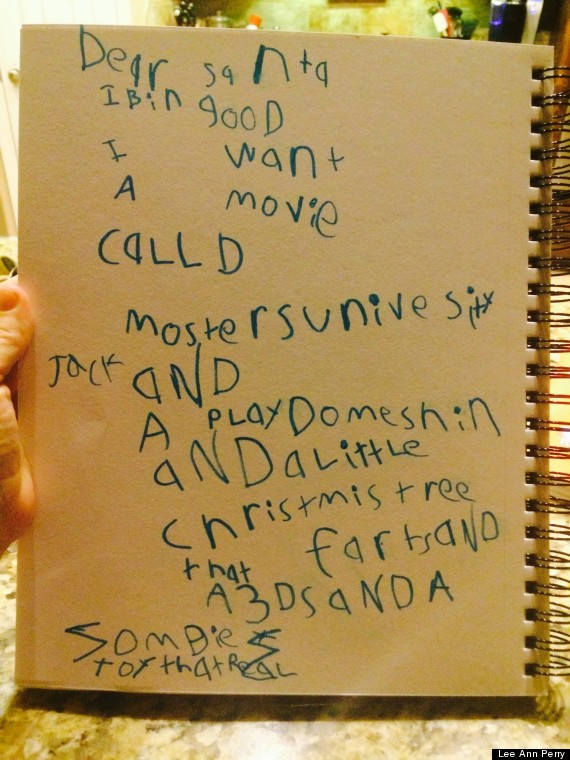 Dear santa
I Bin gooD
I want
A movie
CaLL D
mostersunive sity
Jack aND
A PLayDomeshin
aNDaLittLe
christmis tree
that fartsaND
A3DSaNDA
SomBies
toythatReaL
Lee Ann Perry